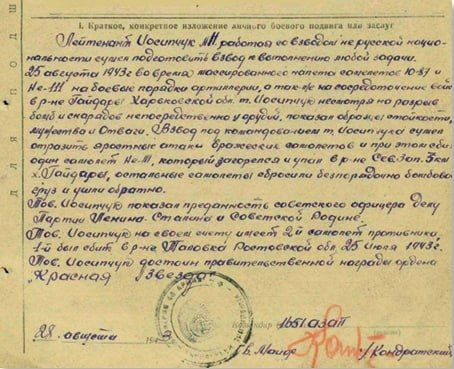 Для подш
I. Краткое, конкретное изложение личного боевого подвига или заслуг
Лейтенант Иосипчук МП работая со взводом не русской нацио-
нальности сумел подготовить взвод к вополнению любой задачи.
25 августа 1943г во время массированного налета самолетов Ю-87 и
Не-111 на боевые порядки артиллерии, а так-же на сосредоточение войск
в р-не Гайдары Харьковской обл. т. Иосипчук несмотря на разрыв
бомб и снарядов непосредственно у орудий, показал образец стойкости,
мужества и Отваги. Взвод под командованием т. Иосипчука сумел
отразить яростные атаки вражеских самолетов и при этом сбил
один самолет Не-111, который загорелся и упал в р-не Сев. Зап. 3 км
х. Гайдары, остальные самолеты сбросили беспорядочно бомбовой
груз и ушли обратно.
Тов. Иосипчук показал преданность советского офицера делу
Партии Ленина-Сталина и Советской Родине.
Тов. Иосипчук на своем счету имеет 2-й самолет противника
1-й был сбит в р-не Таловка Ростовской обл. 25 Июля 1943 г.
Тов. Иосипчук достоин правительственной награды ордена
„Красная Звезда"
Командир 1651 азап
28 августа 194
Гв. Майор /Кондратский/